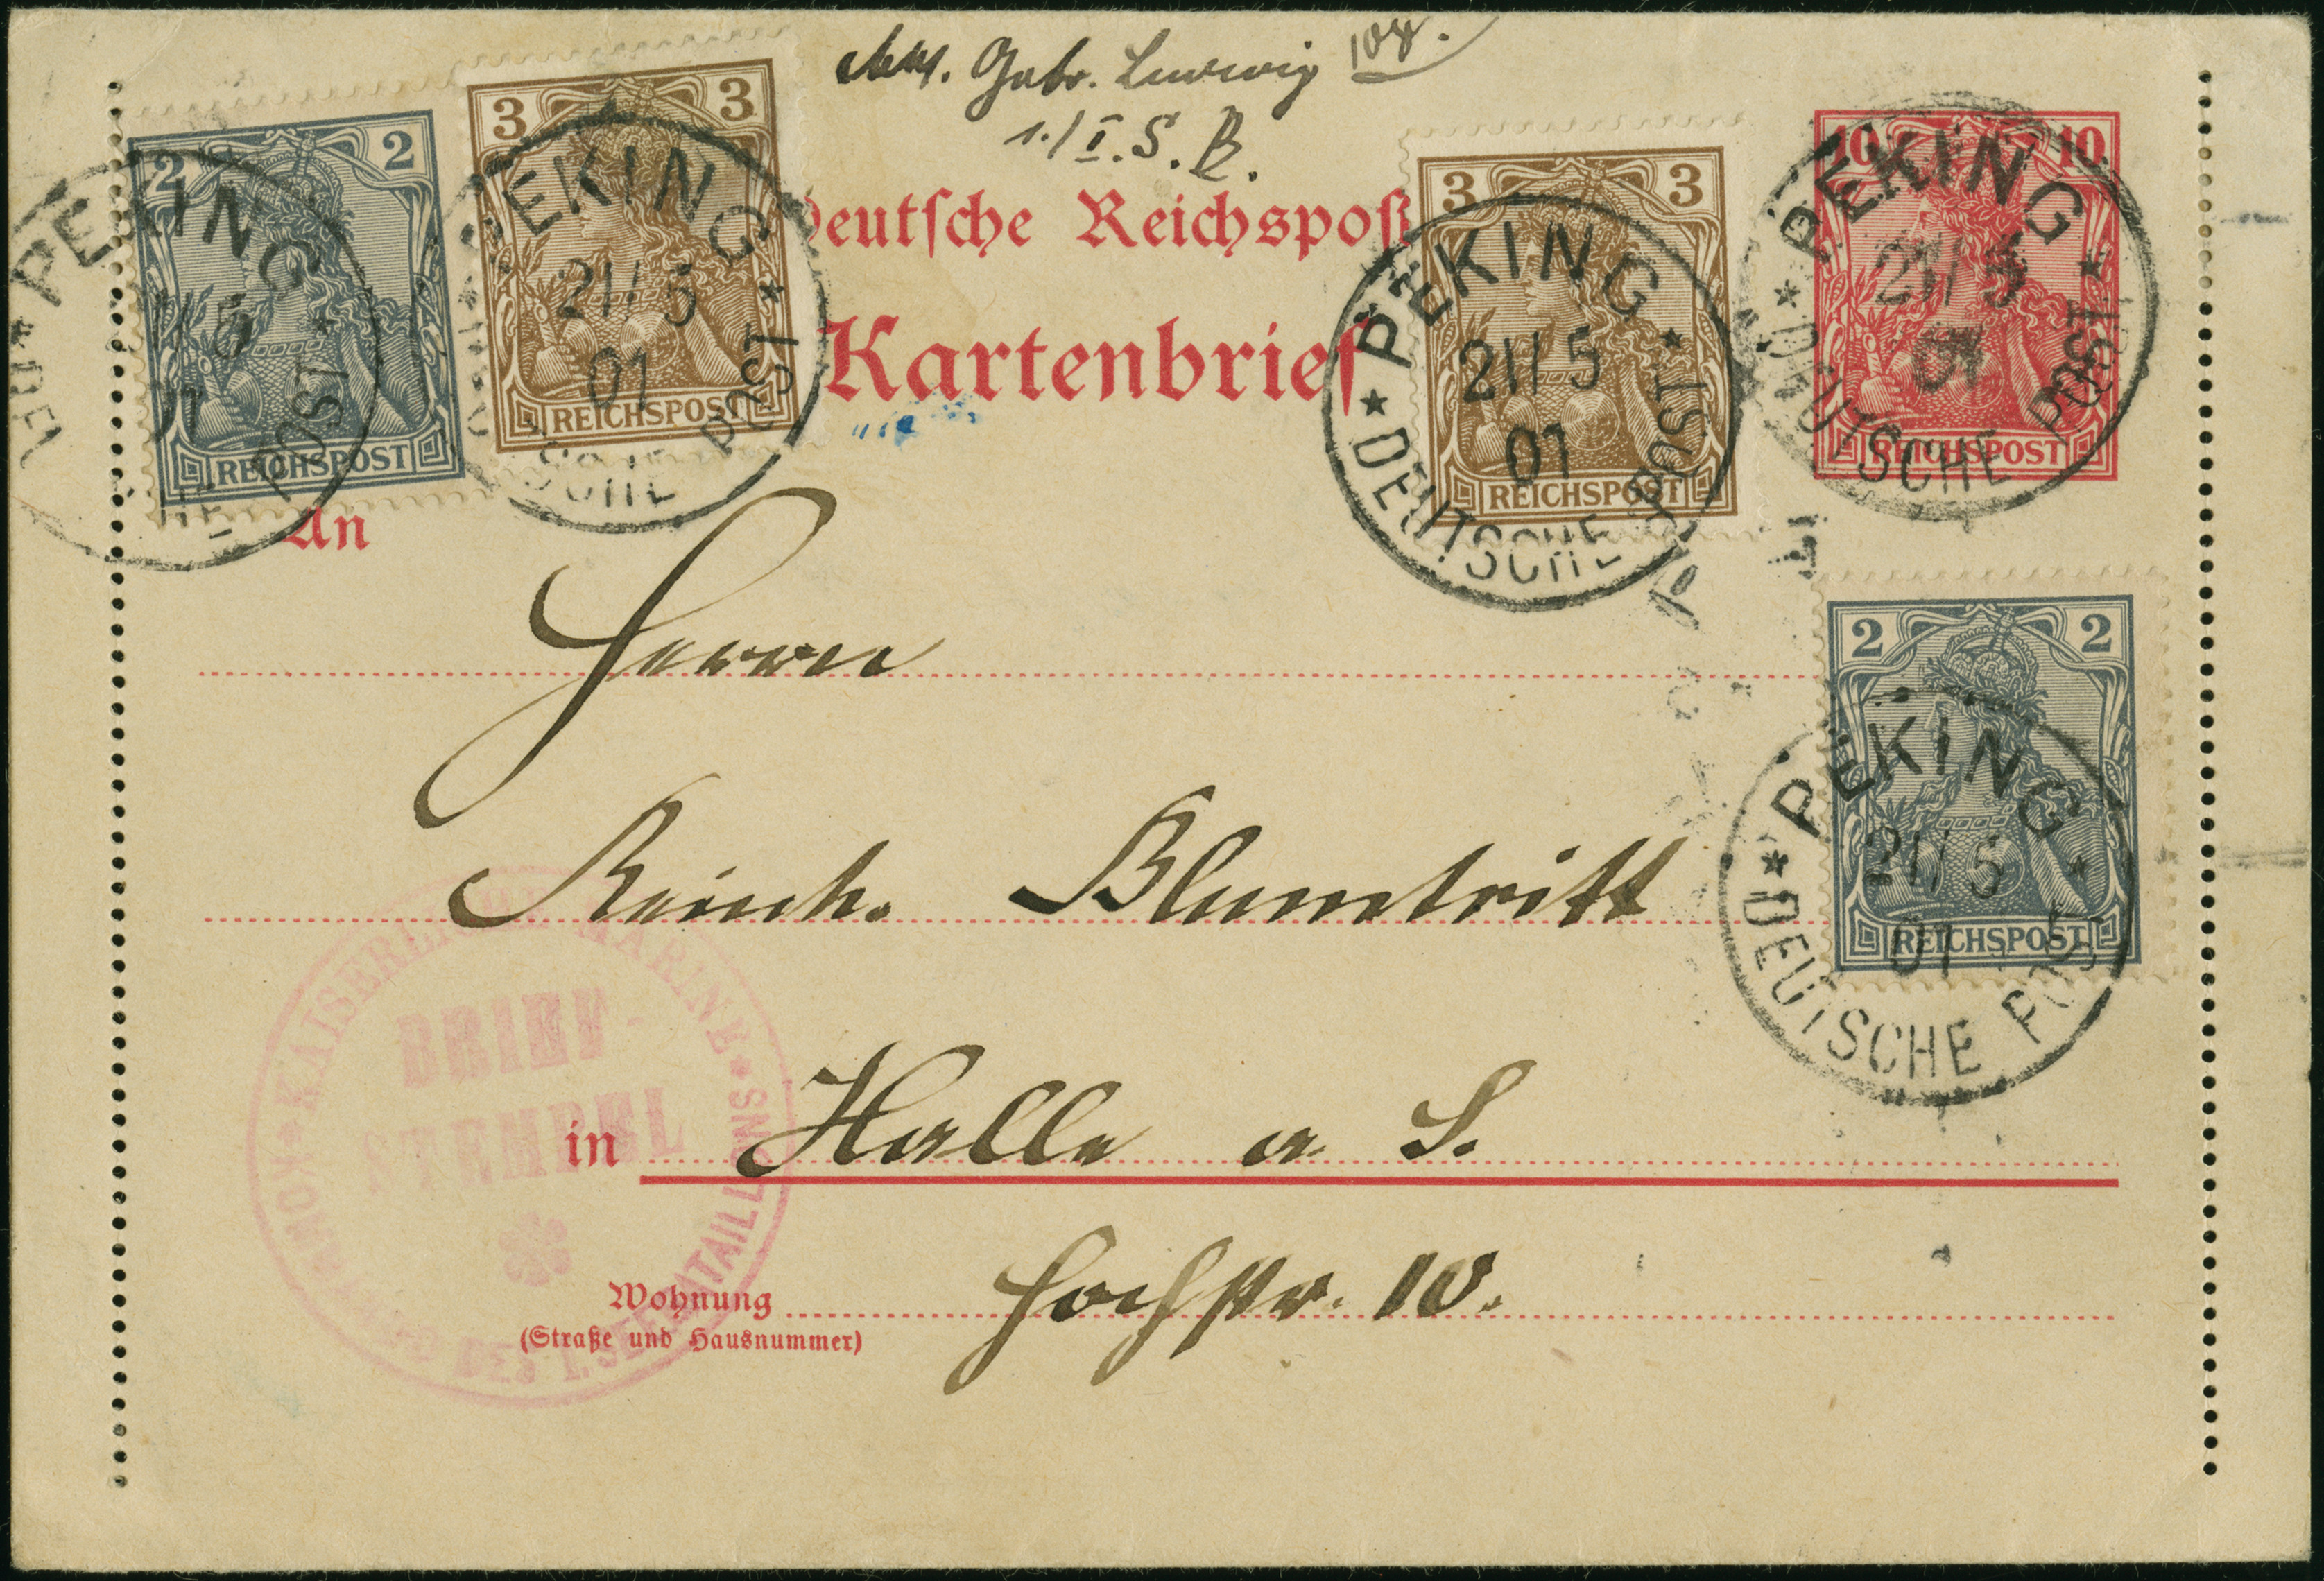 Abs. Gebr. Ludwig
1./I.S.B.
Deutsche Reichspost
Kartenbrief
2 2
REICHSPOST
3 3
REICHSPOST
3 3
REICHSPOST
10 10
REICHSPOST
2 2
REICHSPOST
PEKING
DEUTSCHE POST
PEKING
21/5
01
DEUTSCHE POST
PEKING
21/5
01
DEUTSCHE POST
PEKING
21/5
01
DEUTSCHE POST
PEKING
21/5
01
DEUTSCHE POST
An
Herrn
Reinh. Blumtritt
in Halle a. S.
Wohnung Hochstr. 10.
(Straße und Hausnummer)
KAISERLICHE MARINE
BRIEF-
STEMPEL
DES I. SEEBATAILLONS